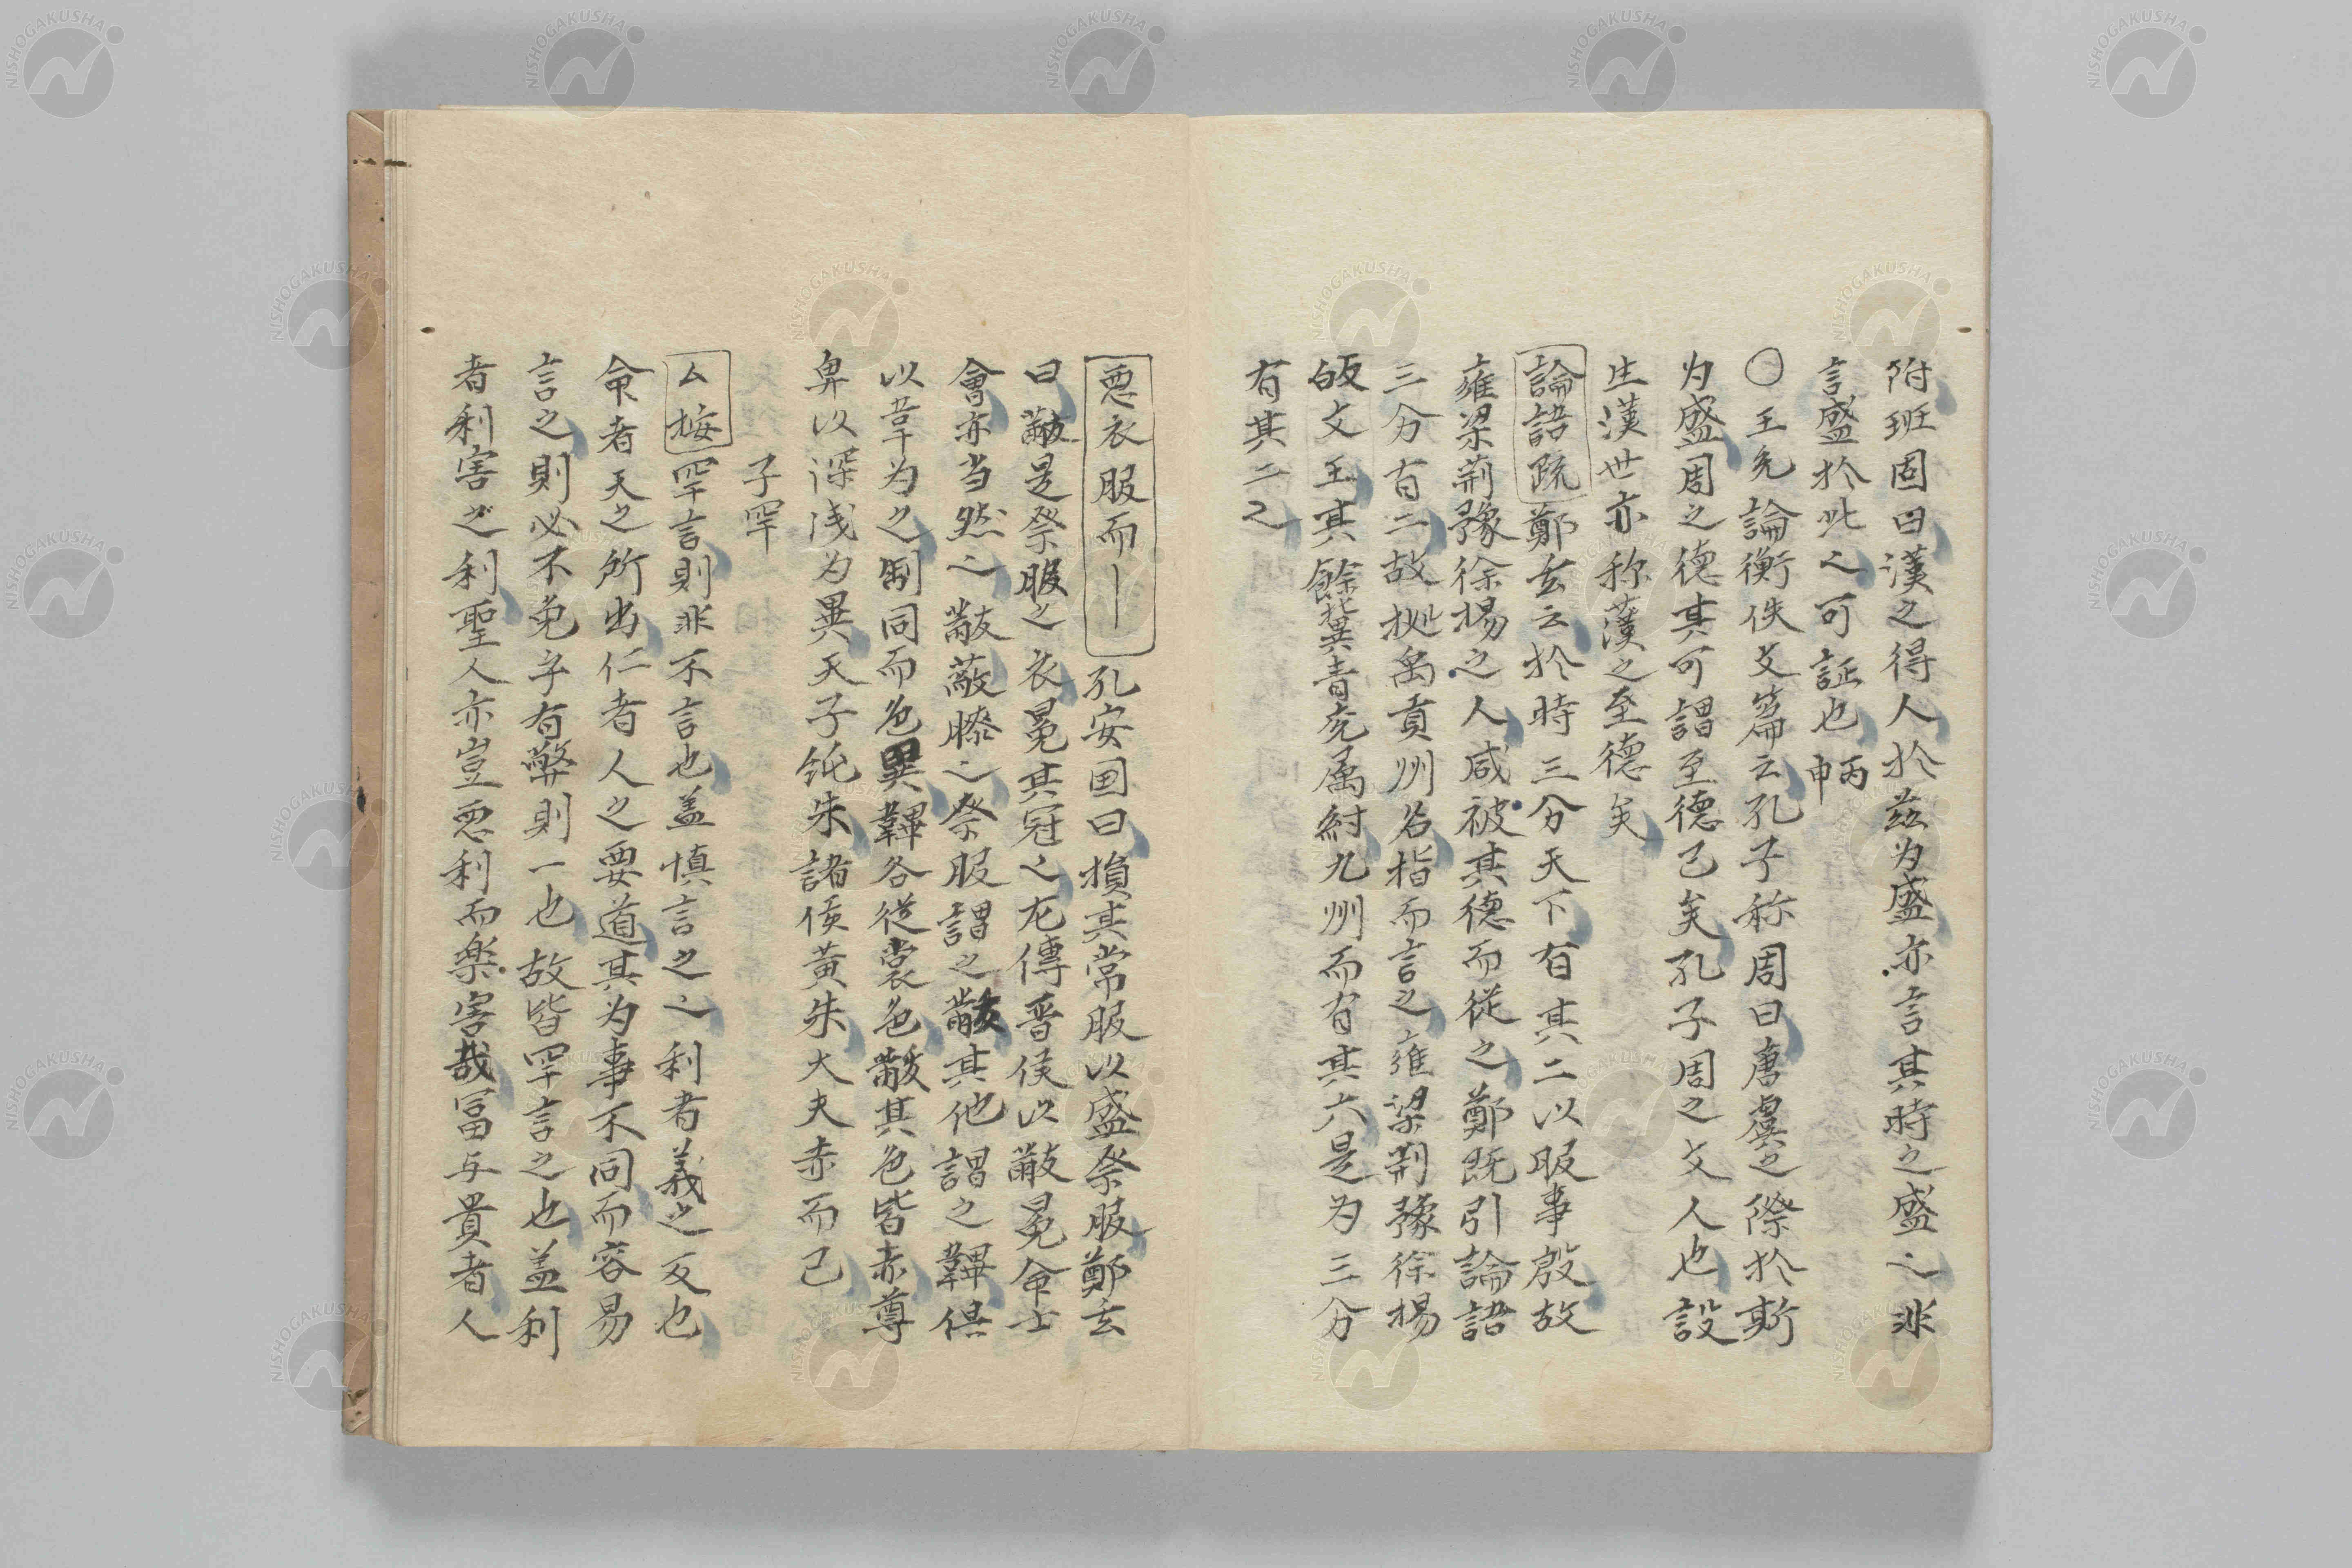 附班固曰漢之得人於茲为盛亦言其時之盛之非
言盛於此之可証也丙申
〇王充論衡佚文篇云孔子称周曰唐虞之際於斯
为盛周之德其可謂至德已矣孔子周之文人也設
生漢世亦称漢之至德矣
論語疏鄭玄云於時三分天下有其二以服事殷故
雍梁荊豫徐揚之人咸被其德而從之鄭既引論語
三分有二故拠禹貢州名指而言之雍梁荊豫徐揚
皈文王其餘冀青兗属紂九州而有其六是为三分
有其二之
悪衣服而｜孔安国曰損其常服以盛祭服鄭玄
曰黻是祭服之衣冕其冠之左傳晋侯以黻冕命士
會亦当然之黻蔽膝之祭服謂之黻其他謂之韠俱
以韋为之制同而色異韠各從裳色黻其色皆赤尊
卑以深浅为異天子純朱諸侯黄朱大夫赤而已
子罕
厶按罕言則非不言也盖慎言之之利者義之反也
命者天之所出仁者人之要道其为事不同而容易
言之則必不免乎有弊則一也故皆罕言之也盖利
者利害之利聖人亦豈悪利而楽害哉冨与貴者人
NISHOGAKUSHA